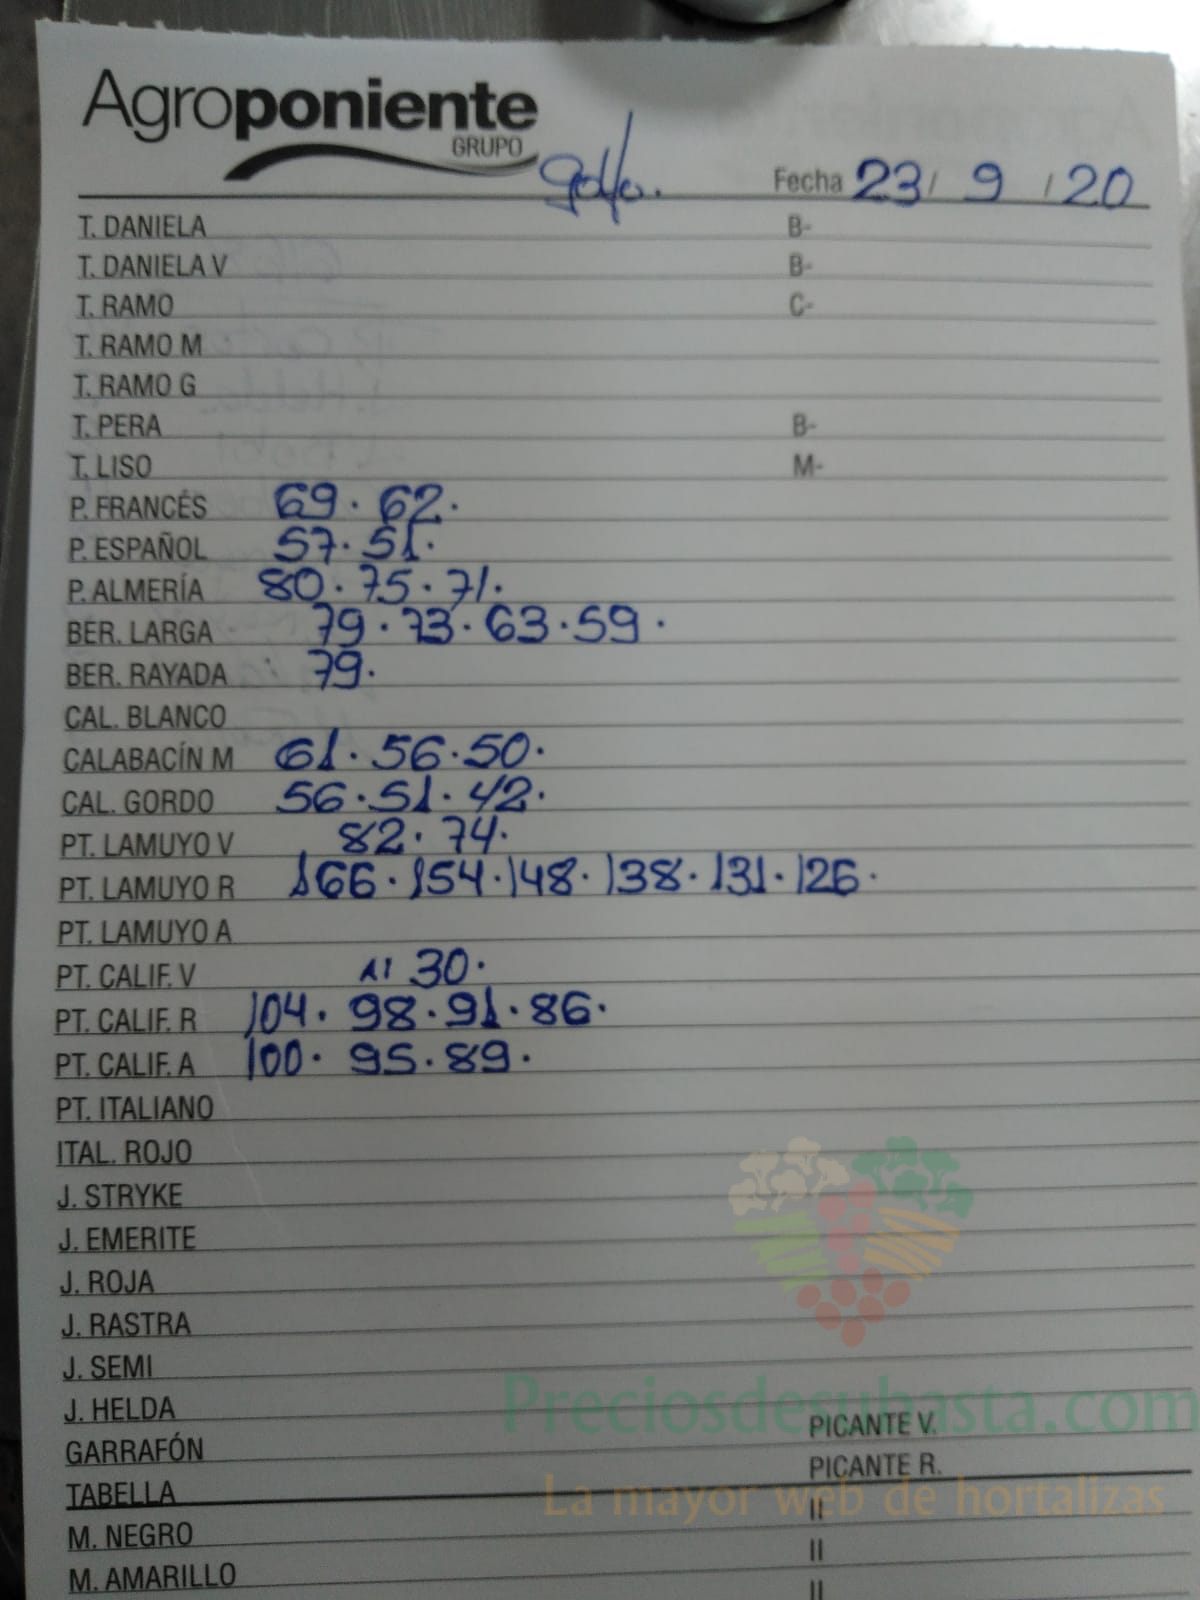 Agroponiente
GRUPO
Golfo. Fecha 23 / 9 / 20
T. DANIELA B-
T. DANIELA V B-
T. RAMO C-
T. RAMO M
T. RAMO G
T. PERA B-
T. LISO M-
P. FRANCÉS 69. 62.
P. ESPAÑOL 57. 51.
P. ALMERÍA 80. 75. 71.
BER. LARGA 79. 73. 63. 59.
BER. RAYADA 79.
CAL. BLANCO
CALABACÍN M 61. 56. 50.
CAL. GORDO 56. 51. 42.
PT. LAMUYO V 82. 74.
PT. LAMUYO R 166. 154. 148. 138. 131. 126.
PT. LAMUYO A
PT. CALIF. V 30.
PT. CALIF. R 104. 98. 91. 86.
PT. CALIF. A 100. 95. 89.
PT. ITALIANO
ITAL. ROJO
J. STRYKE
J. EMERITE
J. ROJA
J. RASTRA
J. SEMI
J. HELDA
Preciosdesubasta.com
GARRAFÓN PICANTE V.
TABELLA PICANTE R.
La mayor web de hortalizas
M. NEGRO II
M. AMARILLO II
II